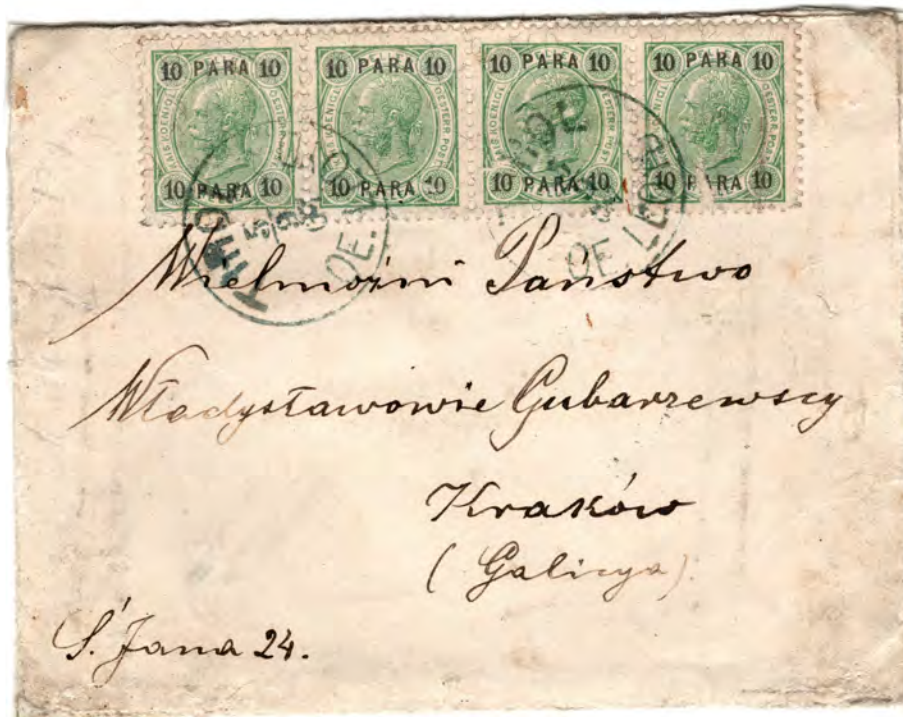 10 PARA 10 10 PARA 10 10 PARA 10 10 PARA 10
10 PARA 10 10 PARA 10 10 PARA 10 10 PARA 10
Wielmożni Państwo
Władysławowie Gubarzewscy
Kraków
(Galicya).
Ś. Jana 24.